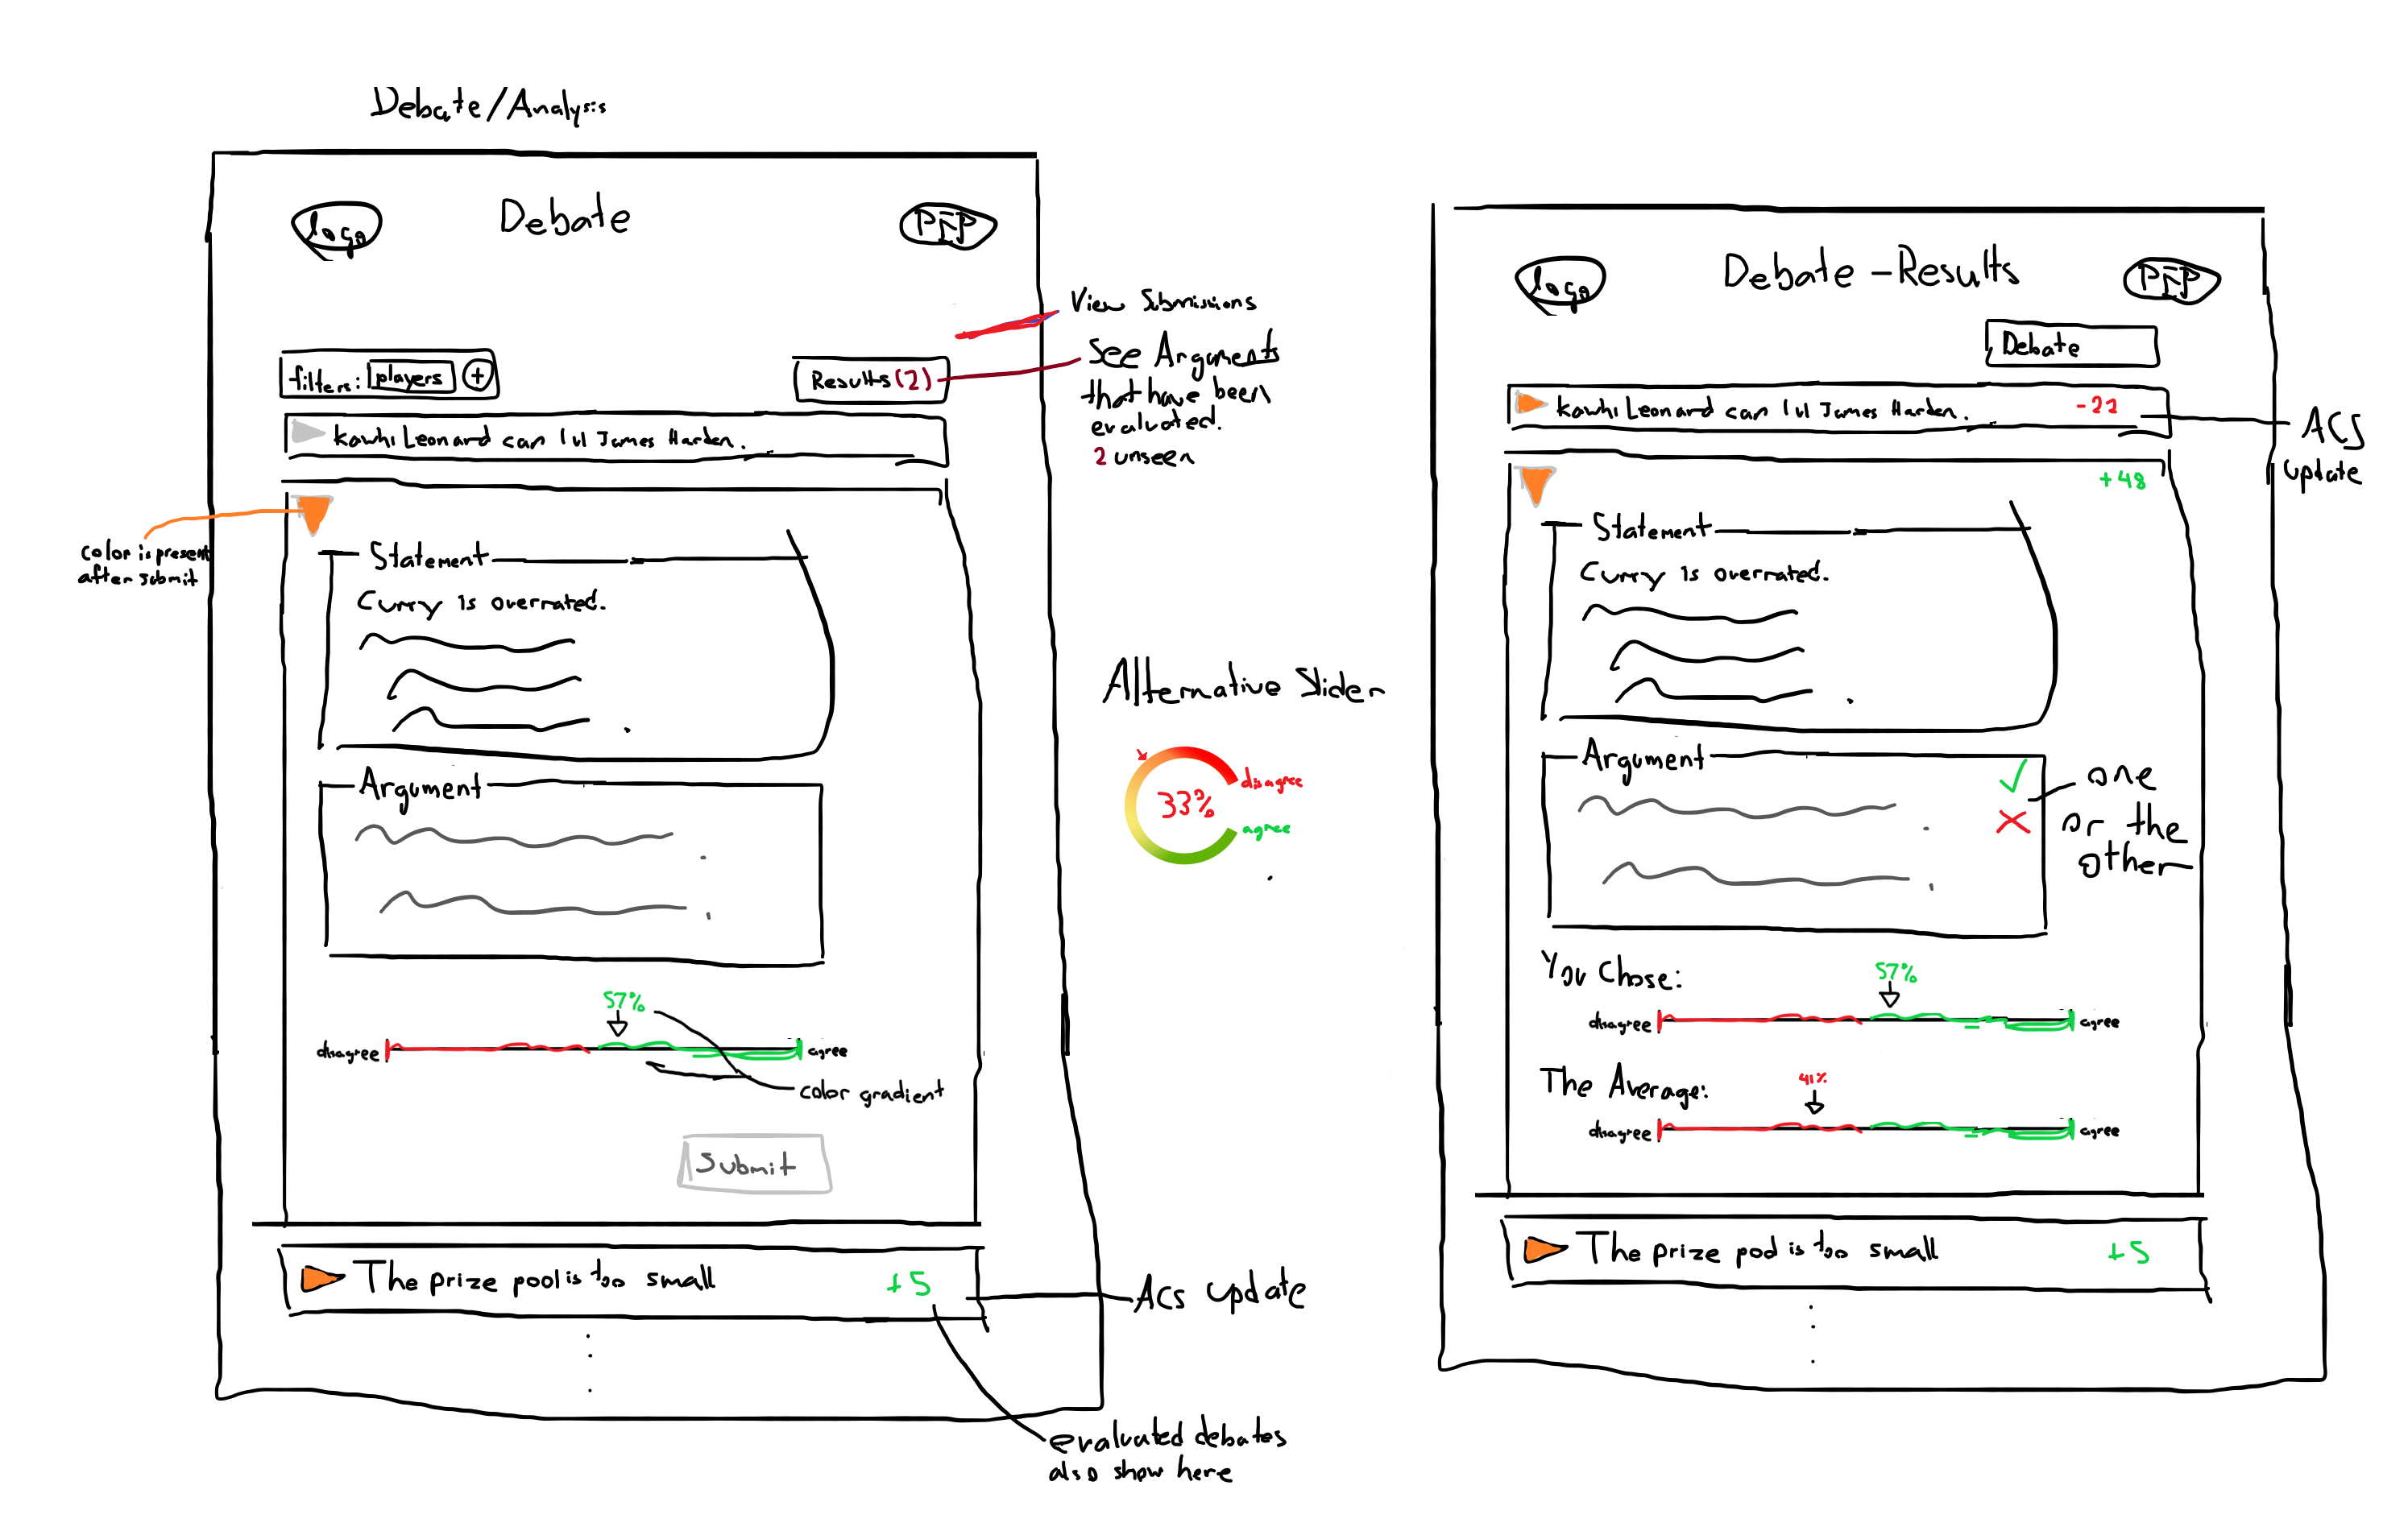 Debate/Analysis
logo
Debate
PFP
View Submissions
See Arguments
that have been
evaluated.
2 unseen
filters: players +
Results (2)
Kawhi Leonard can 1v1 James Harden.
color is present
after submit
Statement
Curry is overrated.
Argument
57%
disagree
agree
color gradient
Submit
The prize pool is too small
+5
Acs update
evaluated debates
also show here
Alternative Slider
33%
disagree
agree
logo
Debate - Results
PFP
Debate
Kawhi Leonard can 1v1 James Harden.
-22
ACS
update
+48
Statement
Curry is overrated.
Argument
one
or the
other
You Chose:
57%
disagree
agree
The Average:
41%
disagree
agree
The prize pool is too small
+5